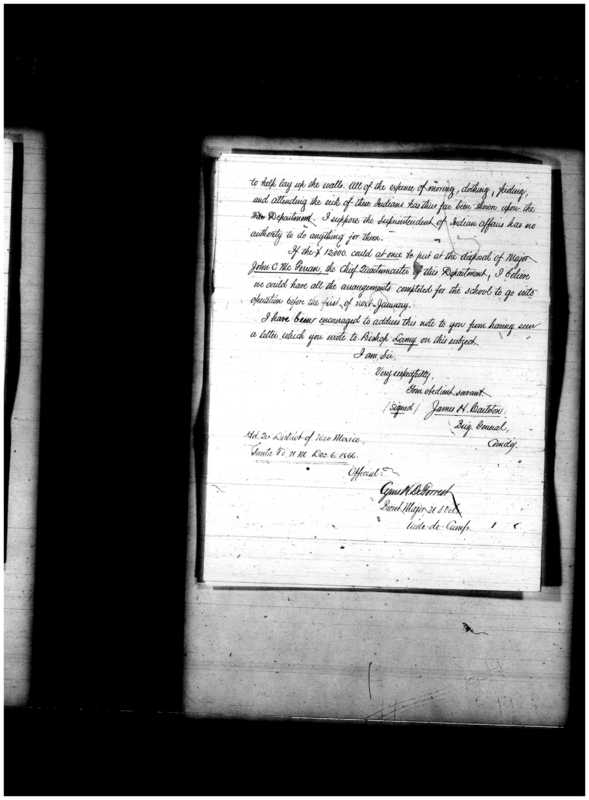 to help lay up the walls. All of the expense of moving, clothing, feeding,
and attending the sick of these Indians has thus far been thrown upon the
War Department. I suppose the Superintendent of Indian affairs has no
authority to do anything for them.
If the $12000. could at once be put at the disposal of Major
John C. Mc Ferran, the Chief Quartermaster of this Department, I believe
we could have all the arrangements completed for the school to go into
operation before the first of next January.
I have been encouraged to address this note to you from having seen
a letter which you wrote to Bishop Lamy on this subject.
I am, Sir,
Very respectfully,
Your obedient servant
(Signed) James H. Carleton
Brig. General,
Comdg.
Hd. Qrs District of New Mexico.
Santa Fe, N M. Dec. 6. 1866.
Official:
Cyrus H. De Forrest
Bvt. Major
Aide-de-Camp.